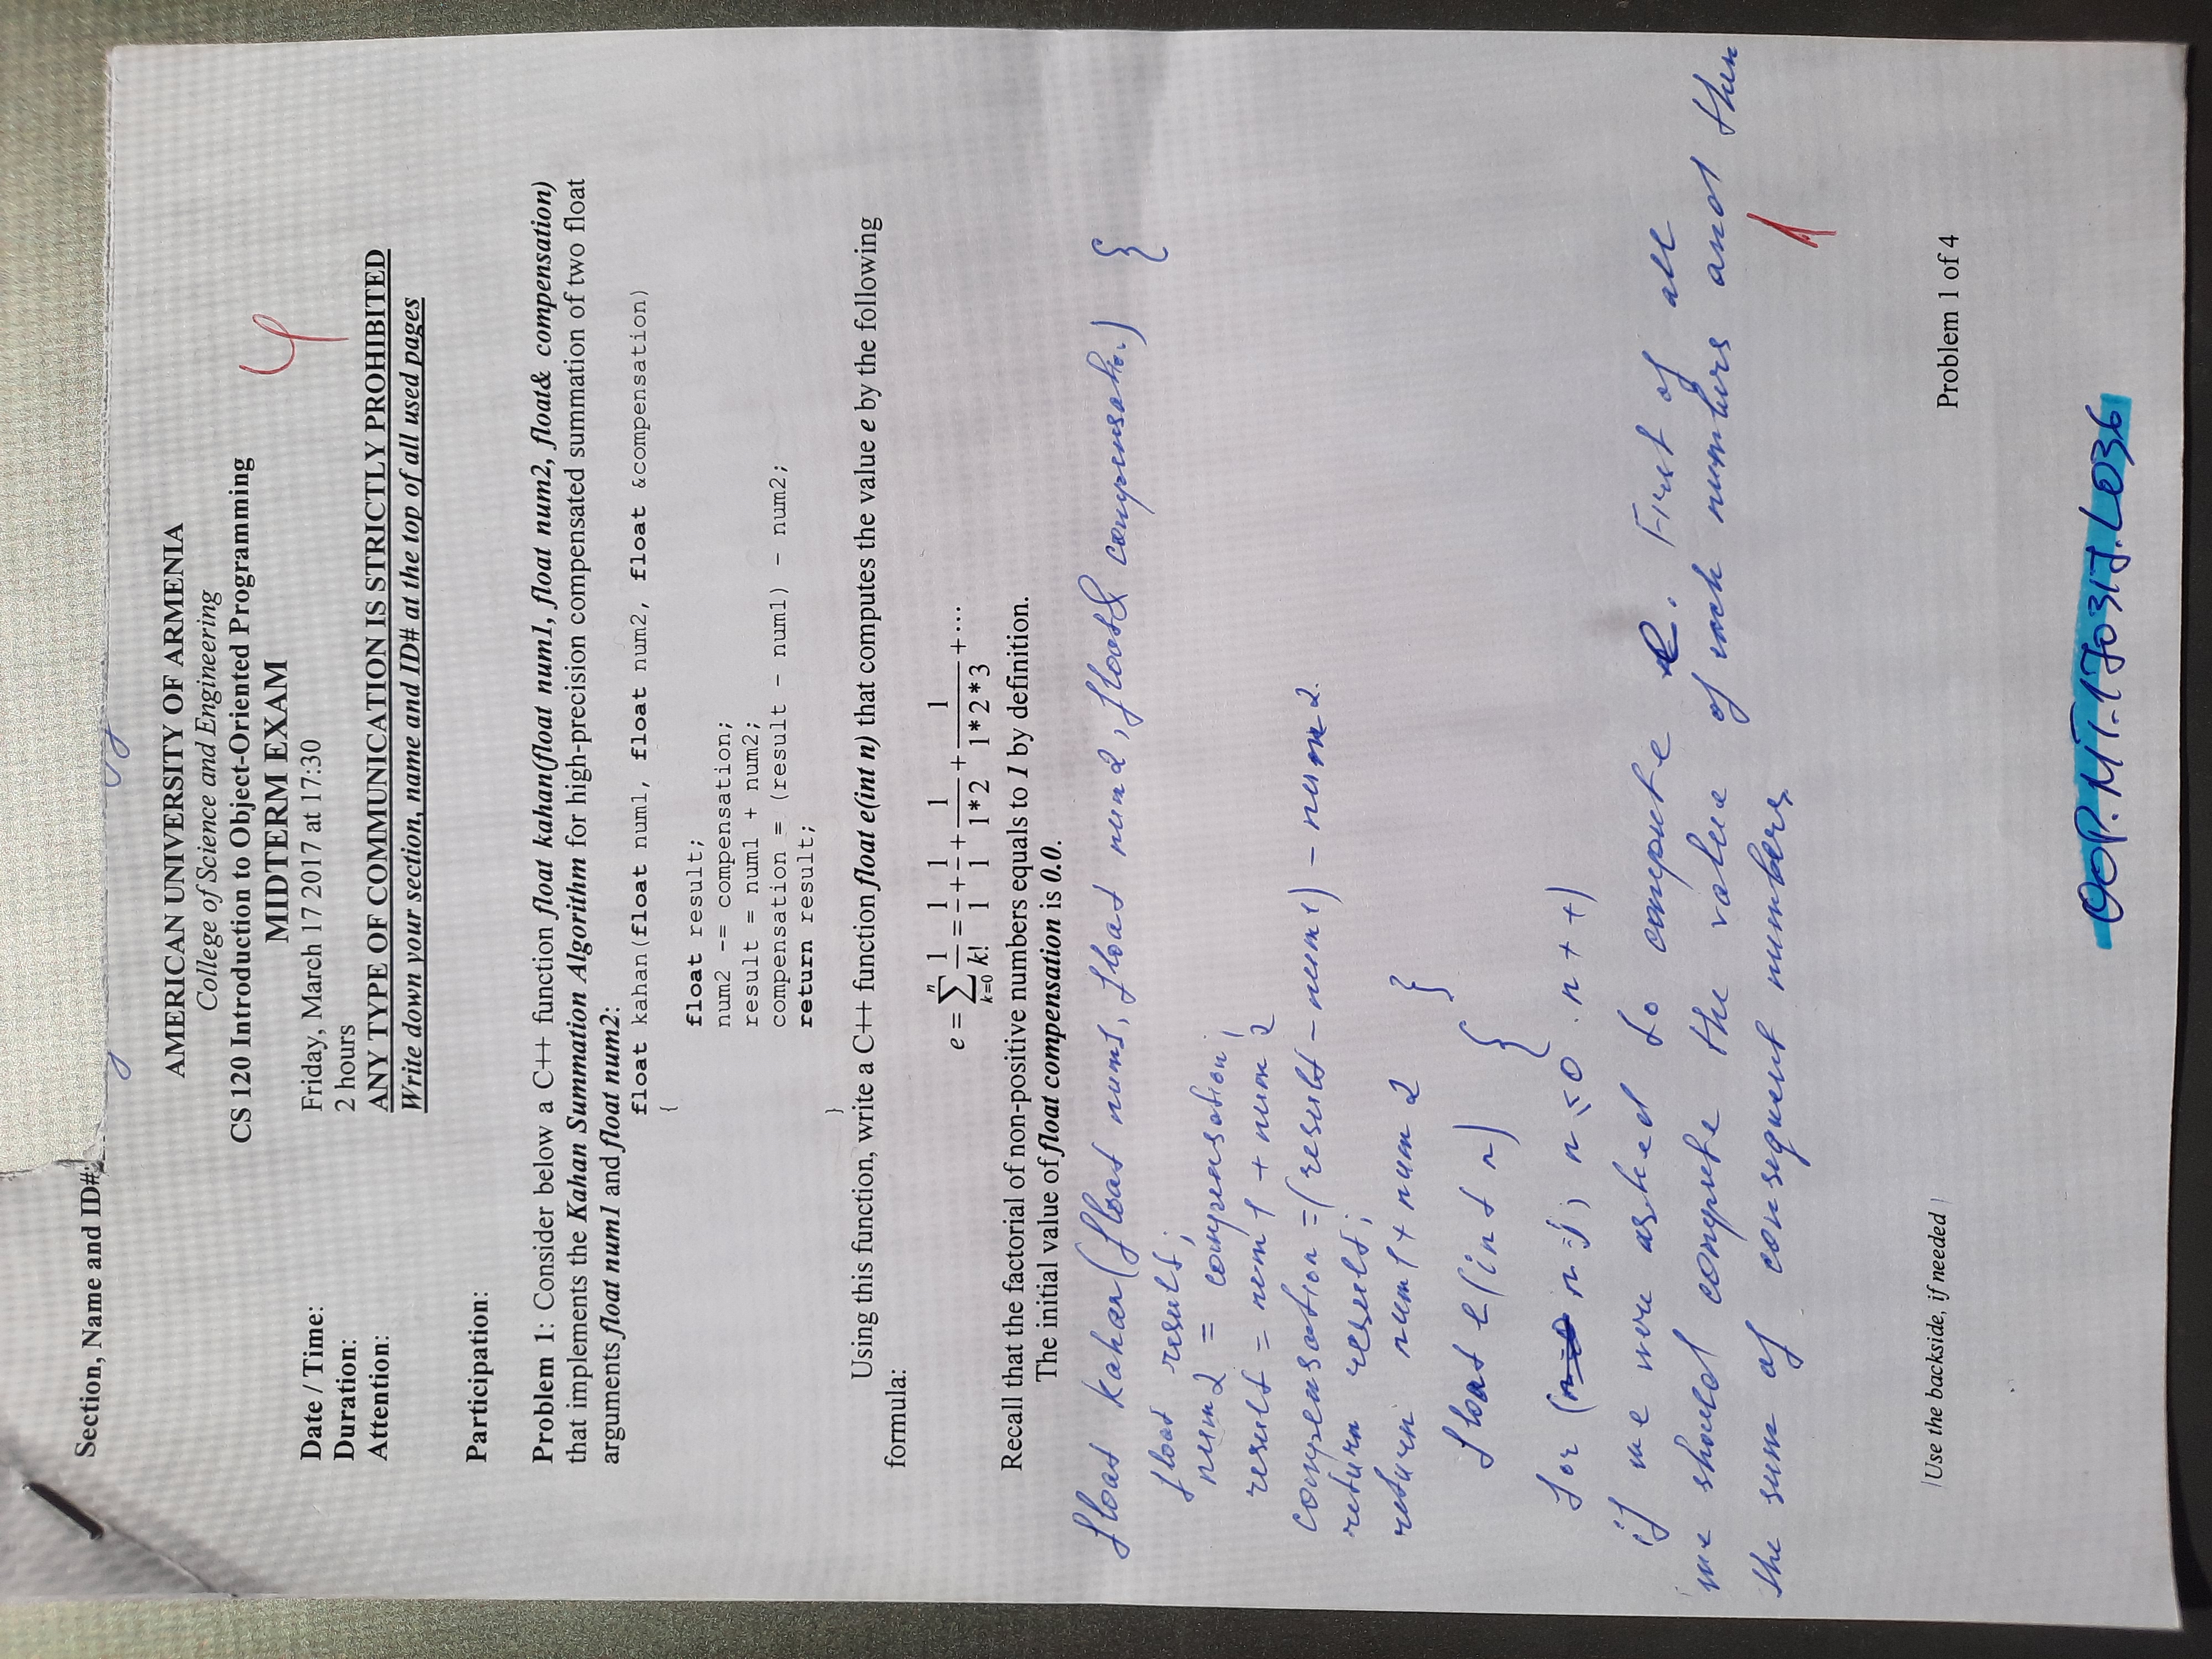 Section, Name and ID#:
AMERICAN UNIVERSITY OF ARMENIA
College of Science and Engineering
CS 120 Introduction to Object-Oriented Programming
MIDTERM EXAM
4
Date / Time: Friday, March 17 2017 at 17:30
Duration: 2 hours
Attention: ANY TYPE OF COMMUNICATION IS STRICTLY PROHIBITED
Write down your section, name and ID# at the top of all used pages
Participation:
Problem 1: Consider below a C++ function float kahan(float num1, float num2, float& compensation)
that implements the Kahan Summation Algorithm for high-precision compensated summation of two float
arguments float num1 and float num2:
float kahan(float num1, float num2, float &compensation)
{
float result;
num2 -= compensation;
result = num1 + num2;
compensation = (result - num1) - num2;
return result;
}
Using this function, write a C++ function float e(int n) that computes the value e by the following
formula:
e = ∑_{k=0}^{n} 1/k! = 1/1 + 1/1 + 1/(1*2) + 1/(1*2*3) + ⋯
Recall that the factorial of non-positive numbers equals to 1 by definition.
The initial value of float compensation is 0.0.
float kahan(float num1, float num2, float& compensation) {
float result;
num2 = compensation;
result = num1 + num2
compensation = (result - num1) - num2.
return result;
return num1 + num2 }
float e(int n) {
for ( n=1; n ≤ 0 . n++)
if we were asked to compute e. First of all
we should compute the value of each numbers and then
the sum of consequent numbers
1
Use the backside, if needed
Problem 1 of 4
OOP.MT.170317.L036